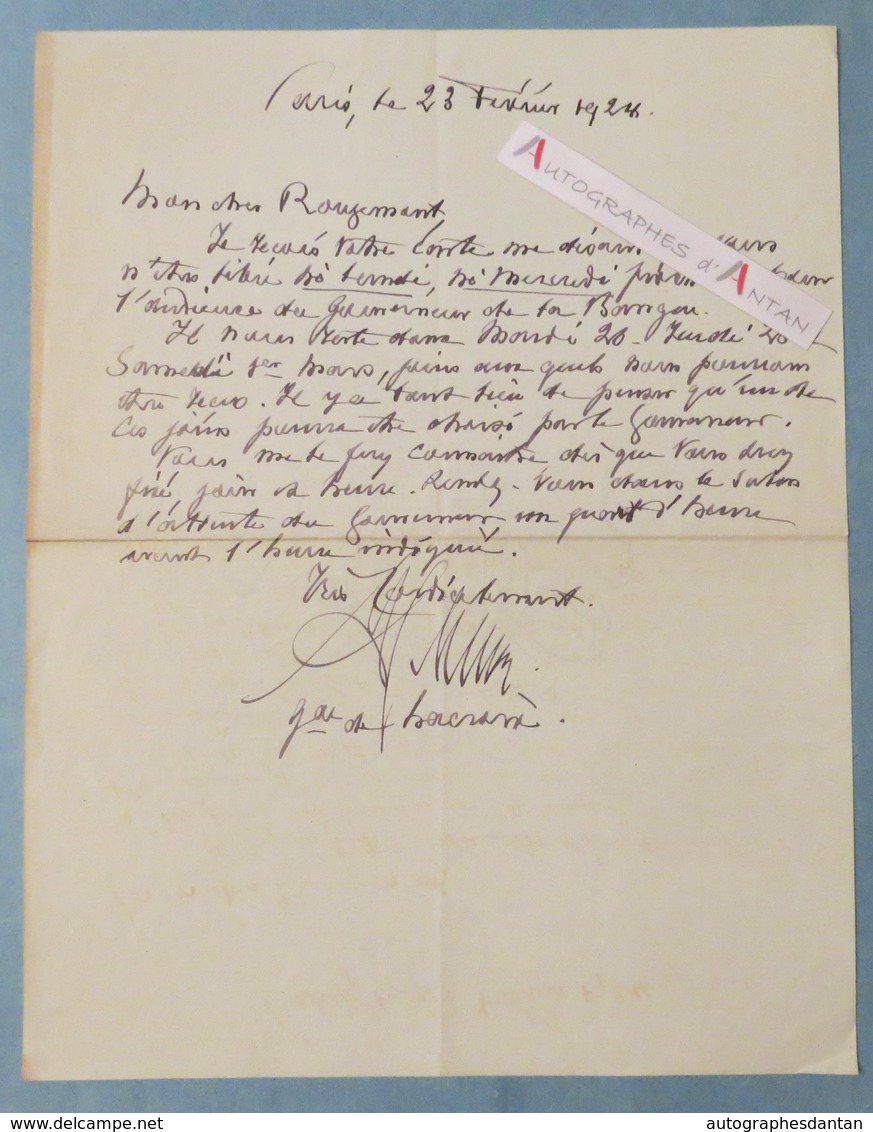 Paris, le 23 Février 1924.
AUTOGRAPHES d'ANTAN
Mon cher Rougemont
Je reçois votre carte me disant vous
n'être libre ni lundi, ni mercredi pour
l'audience du Gouverneur de la Banque.
Il nous reste donc Mardi 26. Jeudi 28
Samedi 1er Mars, jours aux quels nous pouvons
être reçus. Il y a tout lieu de penser qu'un de
ces jours pourra être choisi par le Gouverneur.
Vous me le ferez connaître dès que vous aurez
fixé, jour et heure. Rendez-vous dans le salon
d'attente du Gouverneur un quart d'heure
avant l'heure indiquée.
Très Cordialement.
Gal de
autographesdantan